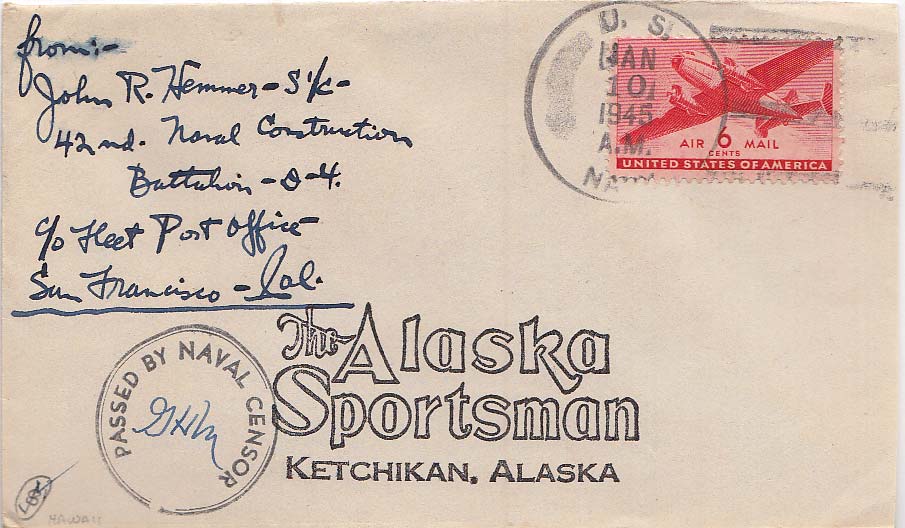 from:-
John R. Hemmer - S 1/c -
42nd. Naval Construction
Battalion - D-4.
c/o Fleet Post Office -
San Francisco - Cal.
U. S.
JAN
10
1945
A.M.
NAVY
AIR 6 MAIL
CENTS
UNITED STATES OF AMERICA
The Alaska
Sportsman
KETCHIKAN, ALASKA
PASSED BY NAVAL CENSOR
HAWAII